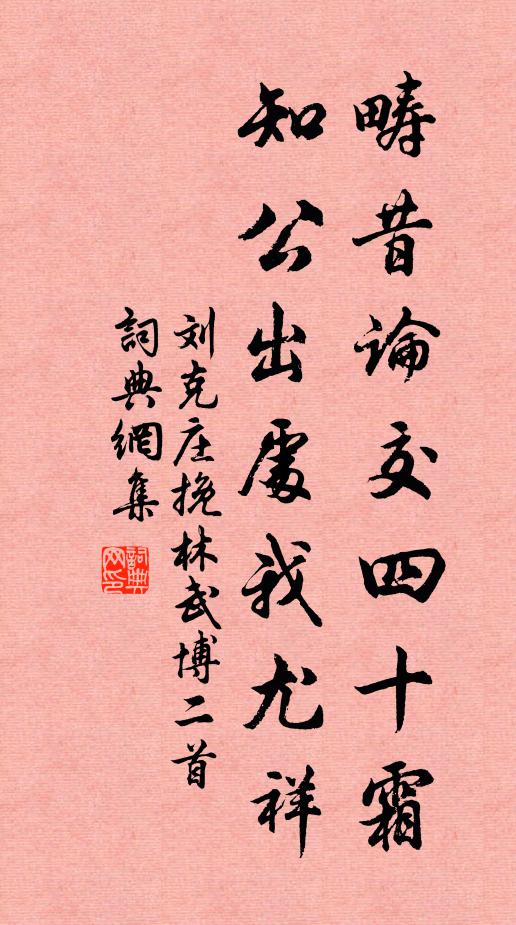 畴昔論交四十霜
知公出處我尤祥
刘克庄挽林武博二首
詞典網集
詞典网印